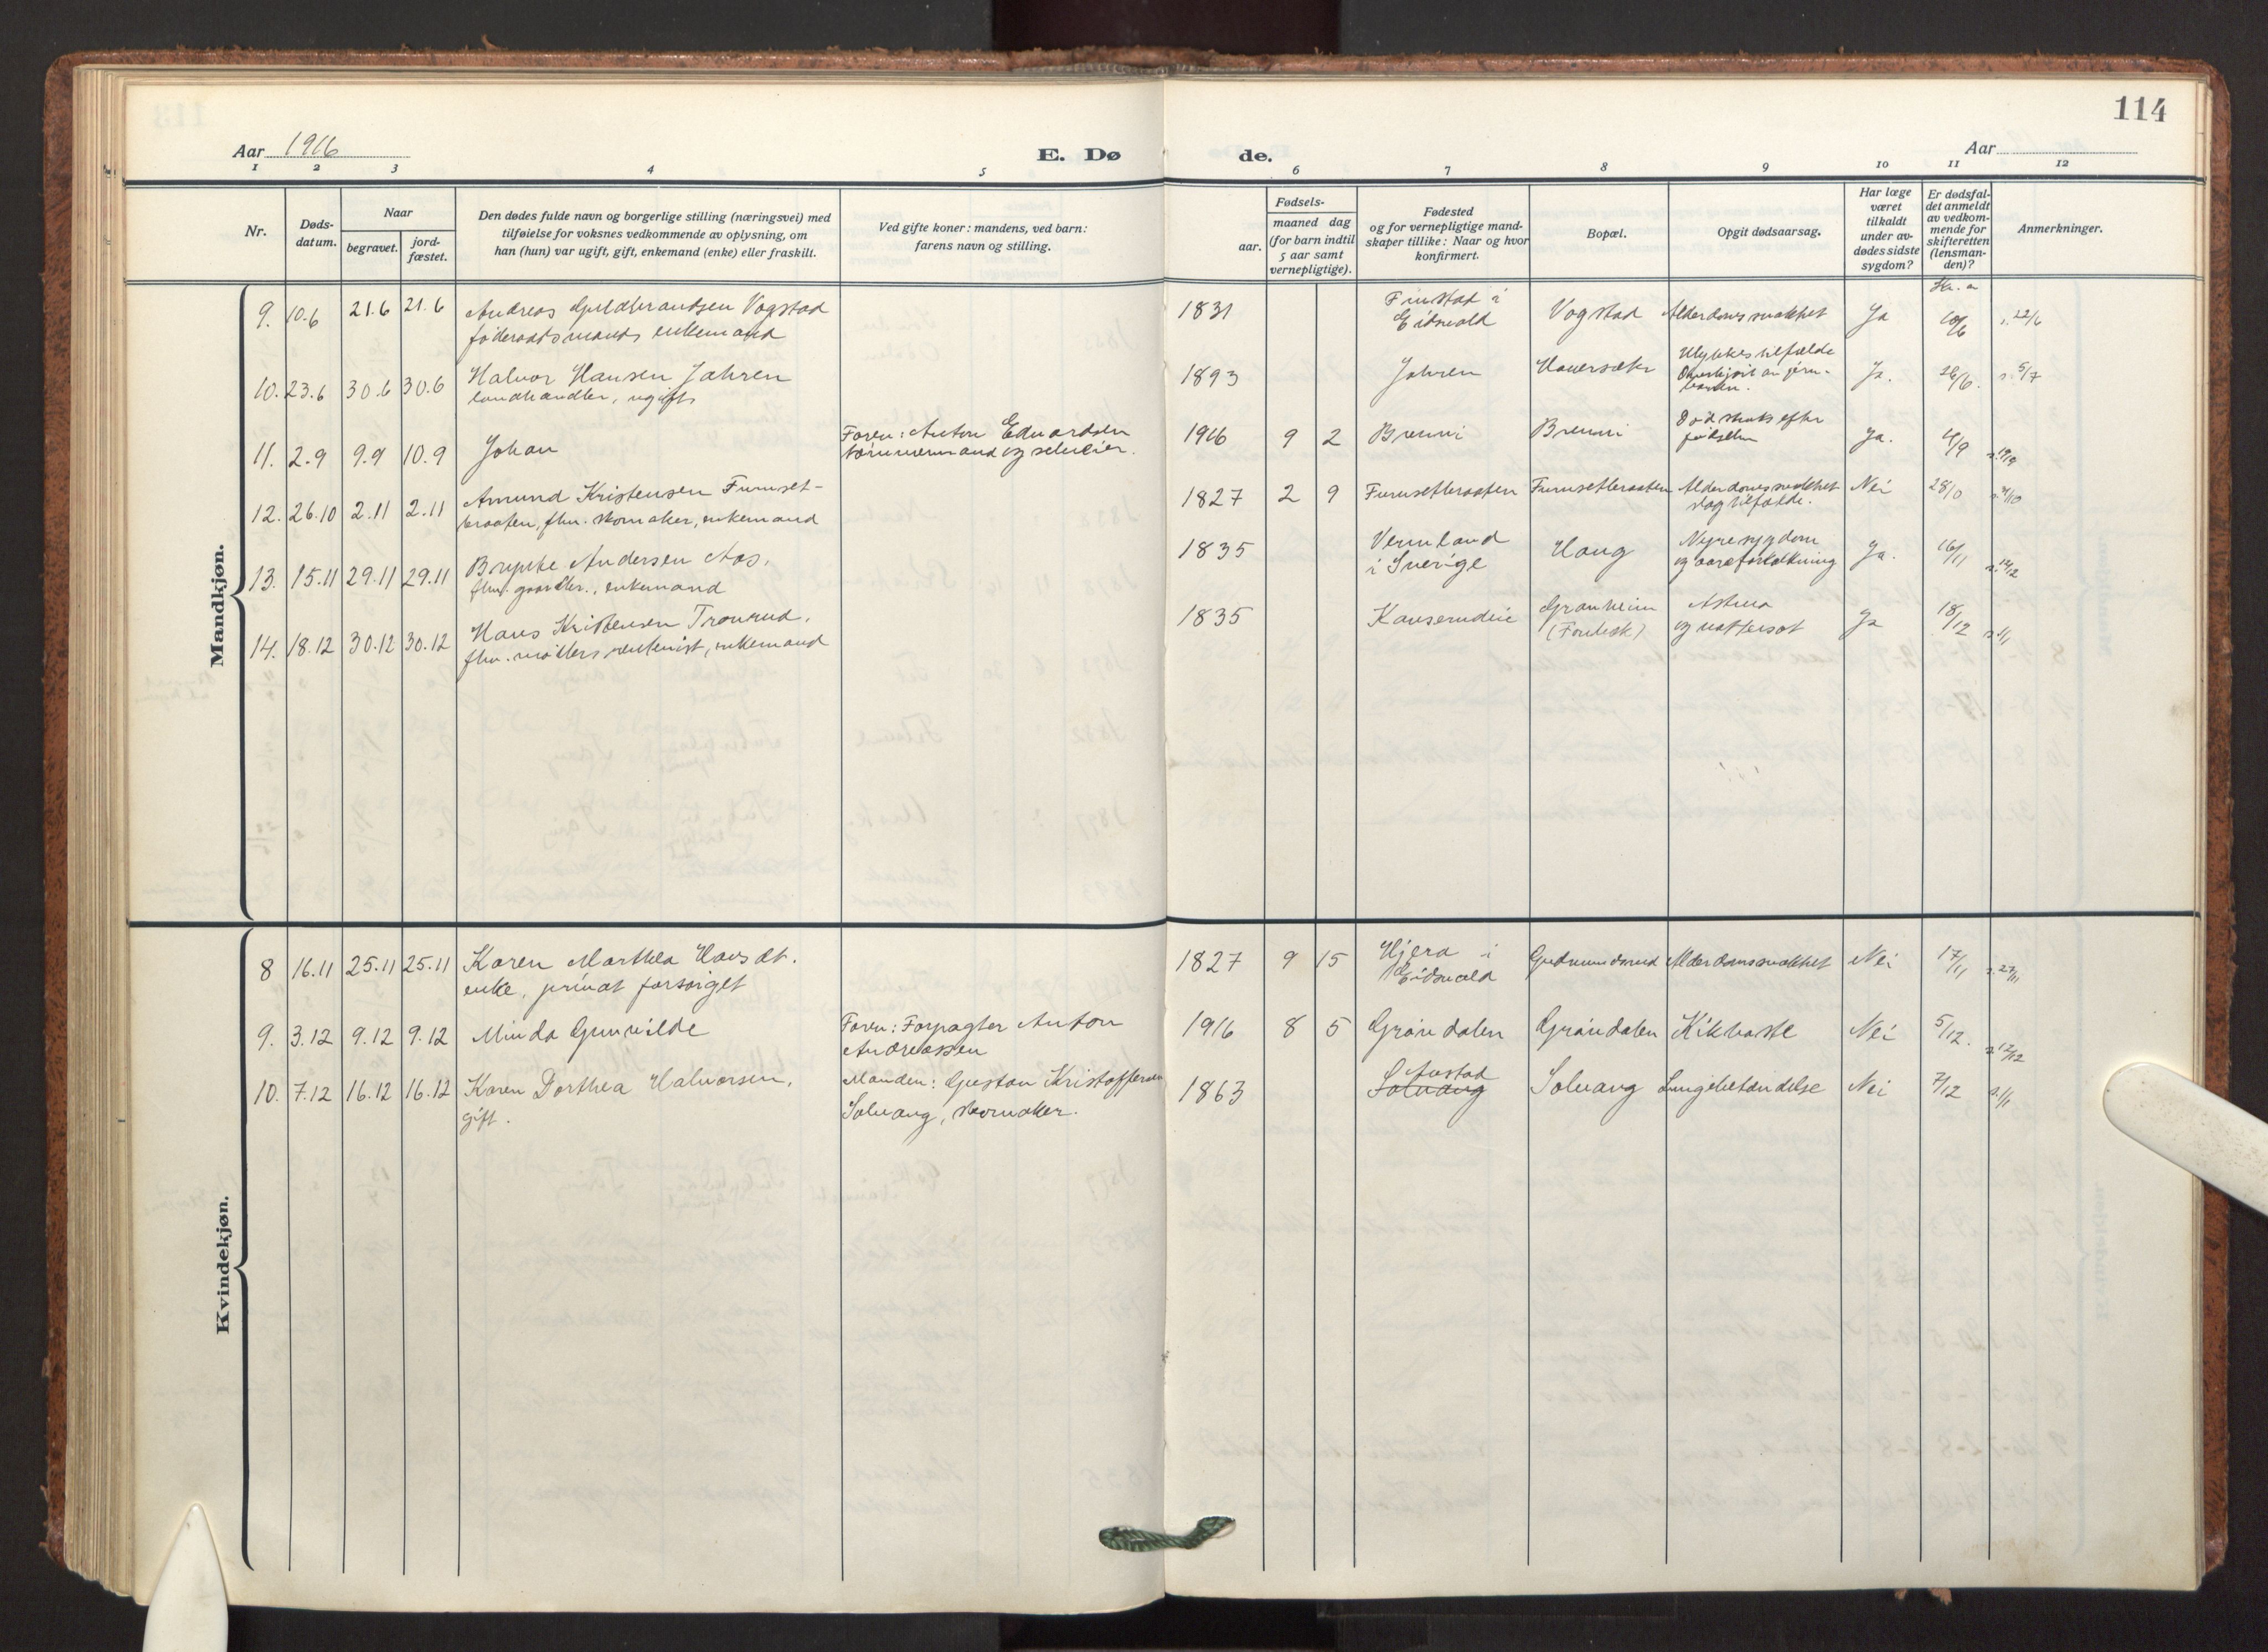 114
Aar 1916
E. Dø
de.
Aar
1 2 3 4 5 6 7 8 9 10 11 12
Nr.
Døds-
datum.
Naar
begravet.
jord-
fæstet.
Den dødes fulde navn og borgerlige stilling (næringsvei) med
tilføielse for voksnes vedkommende av oplysning, om
han (hun) var ugift, gift, enkemand (enke) eller fraskilt.
Ved gifte koner: mandens, ved barn:
farens navn og stilling.
Fødsels-
aar. maaned dag
(for barn indtil
5 aar samt
vernepligtige).
Fødested
og for vernepligtige mand-
skaper tillike: Naar og hvor
konfirmert.
Bopæl.
Opgit dødsaarsag.
Har læge
været
tilkaldt
under av-
dødes sidste
sygdom?
Er dødsfal-
det anmeldt
av vedkom-
mende for
skifteretten
(lensman-
den)?
Anmerkninger.
Mandkjøn.
9. 10.6 21.6 21.6 Andreas Guldbrandsen Vogstad
føderaadsmand, enkemand
1831 Finstad i
Eidsvold
Vogstad Alderdomssvakhet Ja s. 22/6
10. 23.6 30.6 30.6 Halvor Hansen Jahren
landhandler, ugift
1893 Jahren
Ulykkestilfælde
Overkjørt av jern-
banen.
Ja. 26/6. s. 5/7
11. 2.9 9.9 10.9 Johan
Faren: Anton Edvardsen
tømmermand og selveier.
1916 9 2 Brenni Brenni
Død straks efter
fødselen
Ja. 4/9
12. 26.10 2.11 2.11 Amund Kristensen Furuset-
braaten, fhv. skomaker, enkemand
1827 2 9 Furusetbraaten Furusetbraaten Alderdomssvakhet
slagtilfælde.
Nei 28/10
13. 15.11 29.11 29.11 Brynte Andersen Aas,
fhv. gaardbr., enkemand
1835 Vermland
i Sverige
Haug
Nyresygdom
og aareforkalkning
Ja. 16/11 s. 14/12
14. 18.12 30.12 30.12 Hans Kristensen Tronrud,
fhv. møllers, enkemand
1835 Granheim
Astma
og vattersot
Ja 18/12 s. 1/1
Kvindekjøn.
8 16.11 25.11 25.11 Karen Marthea
enke, privat forsørget
1827 9 15 Hjera i
Eidsvold
Gudmundsrud Alderdomssvakhet Nei 17/11 s. 27/11
9. 3.12 9.12 9.12 Minda Gunvilde
Faren: Forpagter Anton
Andreassen
1916 8 5 Grøndalen Grøndalen Kikhoste Nei 5/12. s. 12/12
10. 7.12 16.12 16.12 Karen Dorthea Halvorsen,
gift.
Manden: Gustav Kristoffersen
Solvang, skomaker.
1863 Austad
Solvang
Solvang Lungebetændelse Nei 7/12 s. 1/1